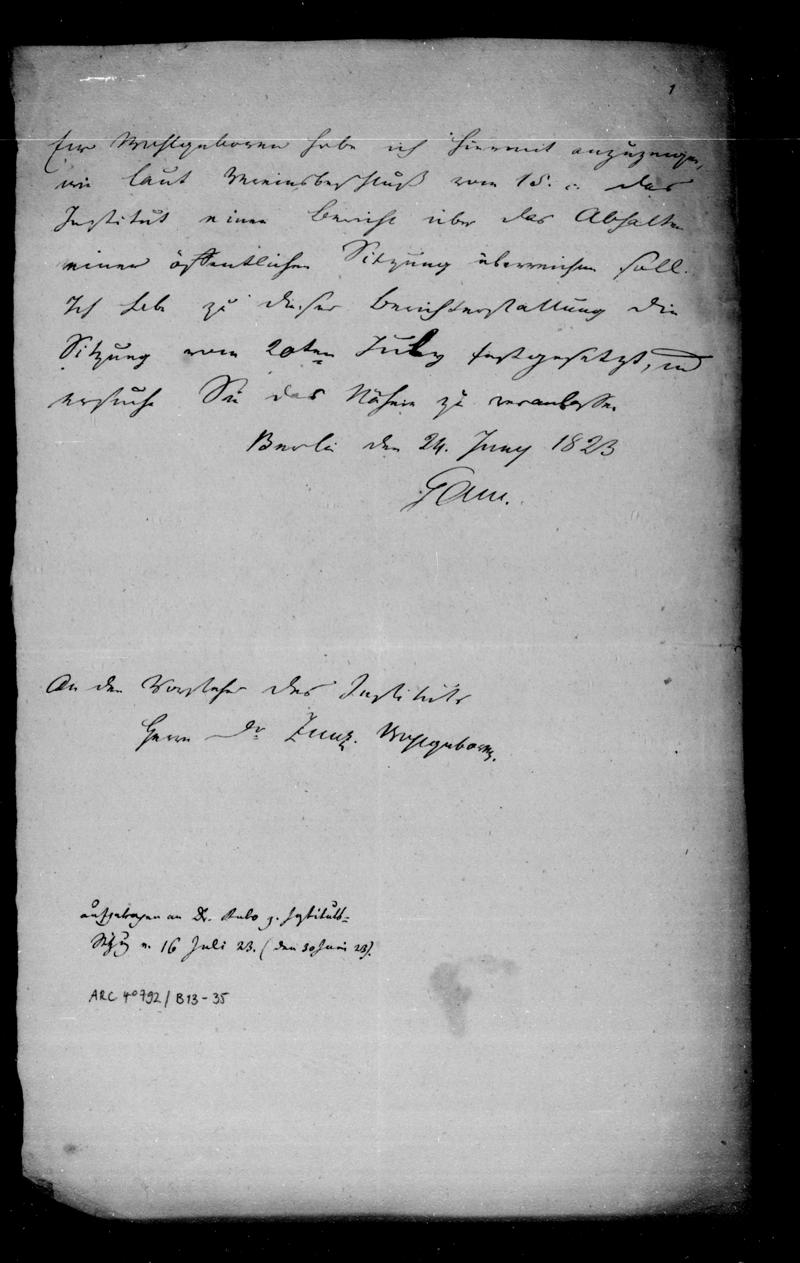 1
Ew Wohlgeboren habe ich hiermit anzuzeigen,
wie laut Vereinsbeschluß vom 15. c. das
Institut einen Bericht über das Abhalten
einer öffentlichen Sitzung überreichen soll.
Ich habe zu dieser Berichterstattung die
Sitzung vom 20ten July festgesetzt, und
ersuche Sie das Nähere zu veranlassen
Berlin den 24. Juny 1823
Gans.
An den Vorsteher des Instituts
Herrn Dr Zunz. Wohlgeboren.
aufgetragen an Dr. Rubo z. Instituts-
Sitzg v. 16 Juli 23. (den 30 Juni 23).
ARC 4° 792 / B13-35